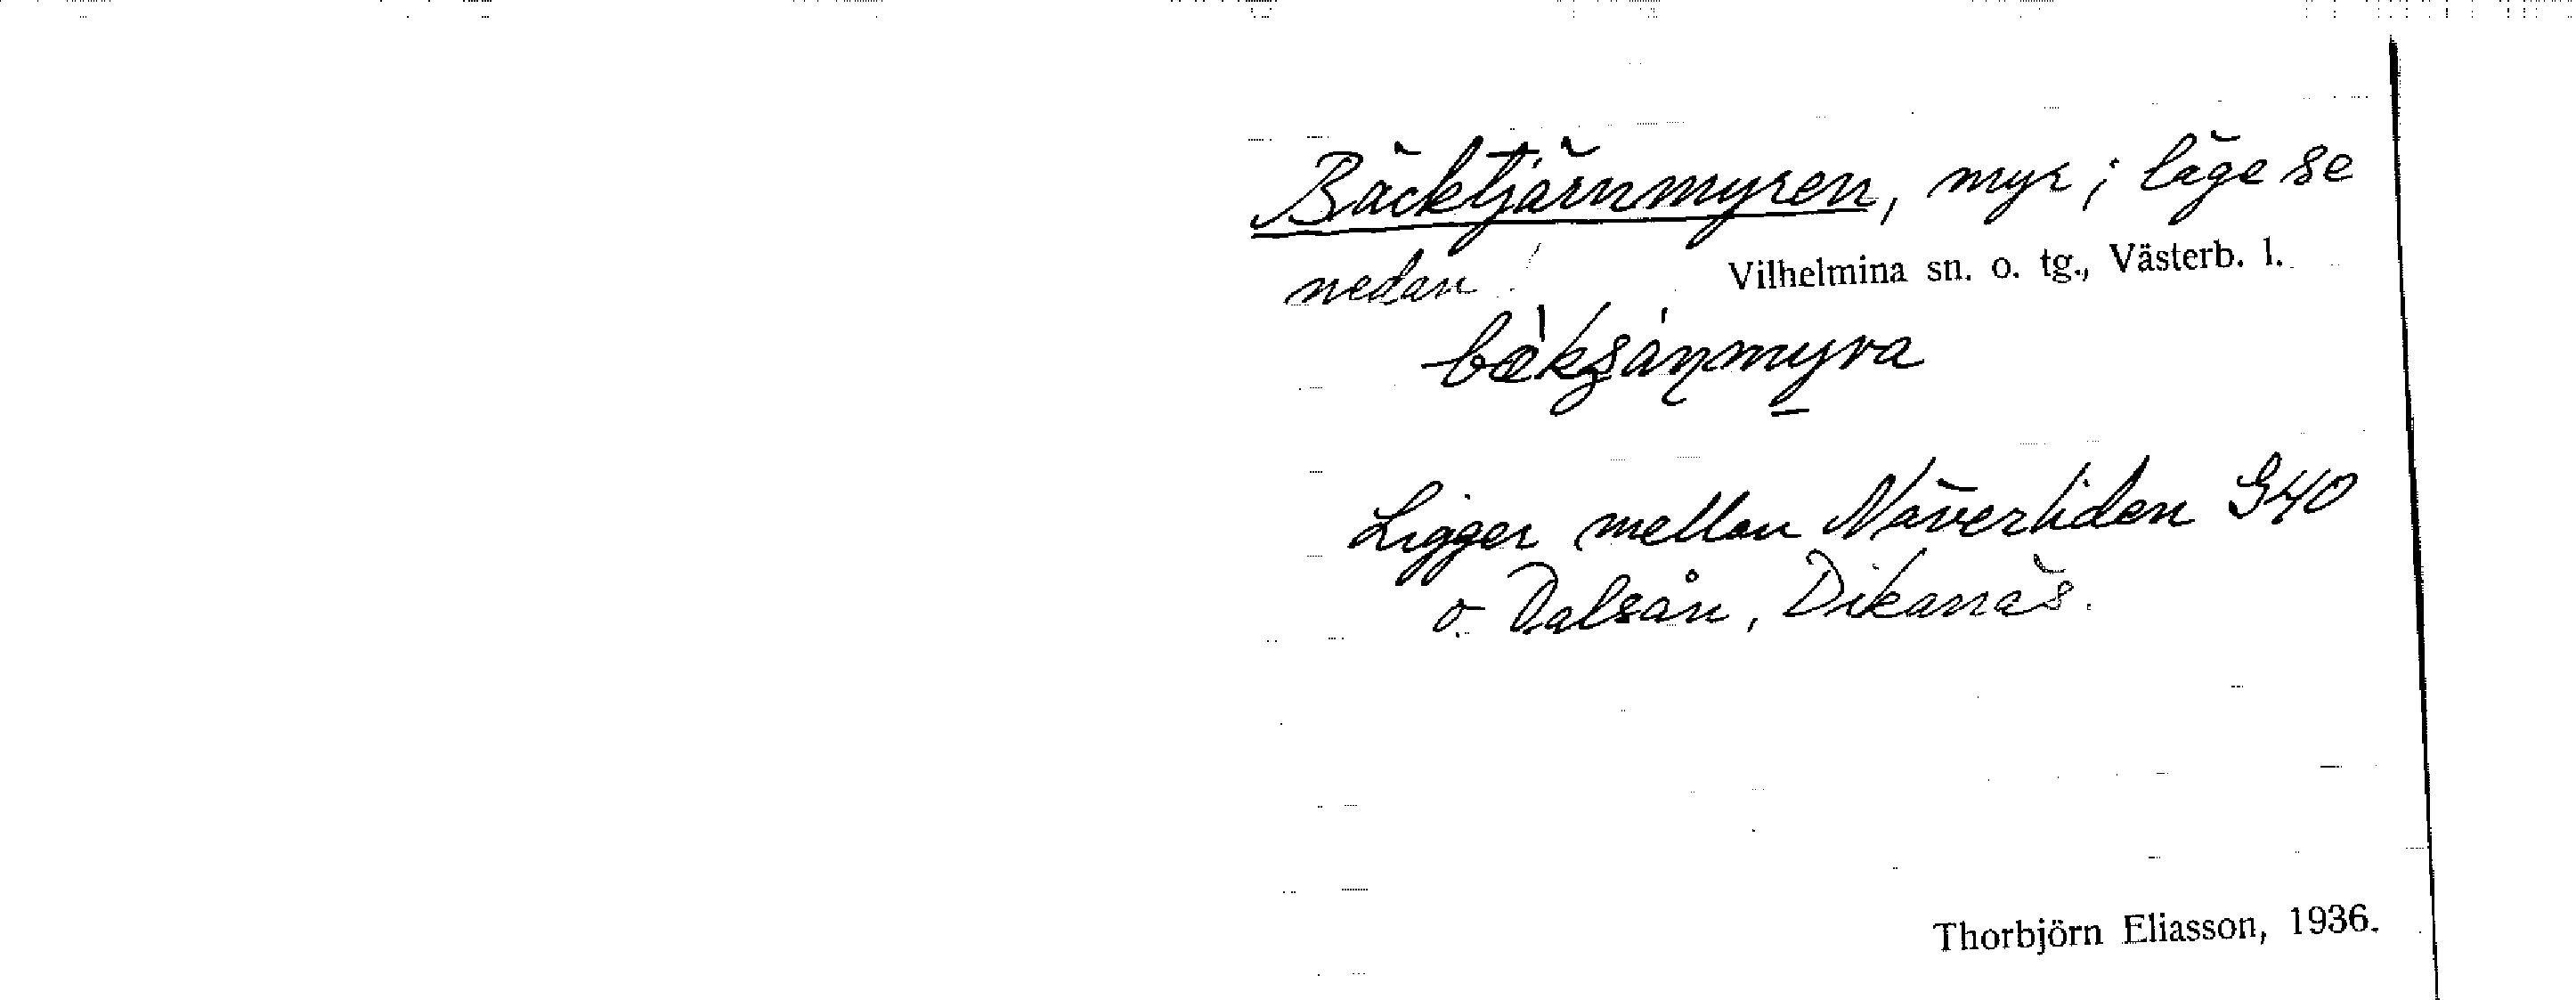 Bäcktjärnmyren, myr; läge se
nedan! Vilhelmina sn. o. tg., Västerb. l.
Ligger mellan Näverliden G40
o. Dalsån, Dikanäs.
Thorbjörn Eliasson, 1936.